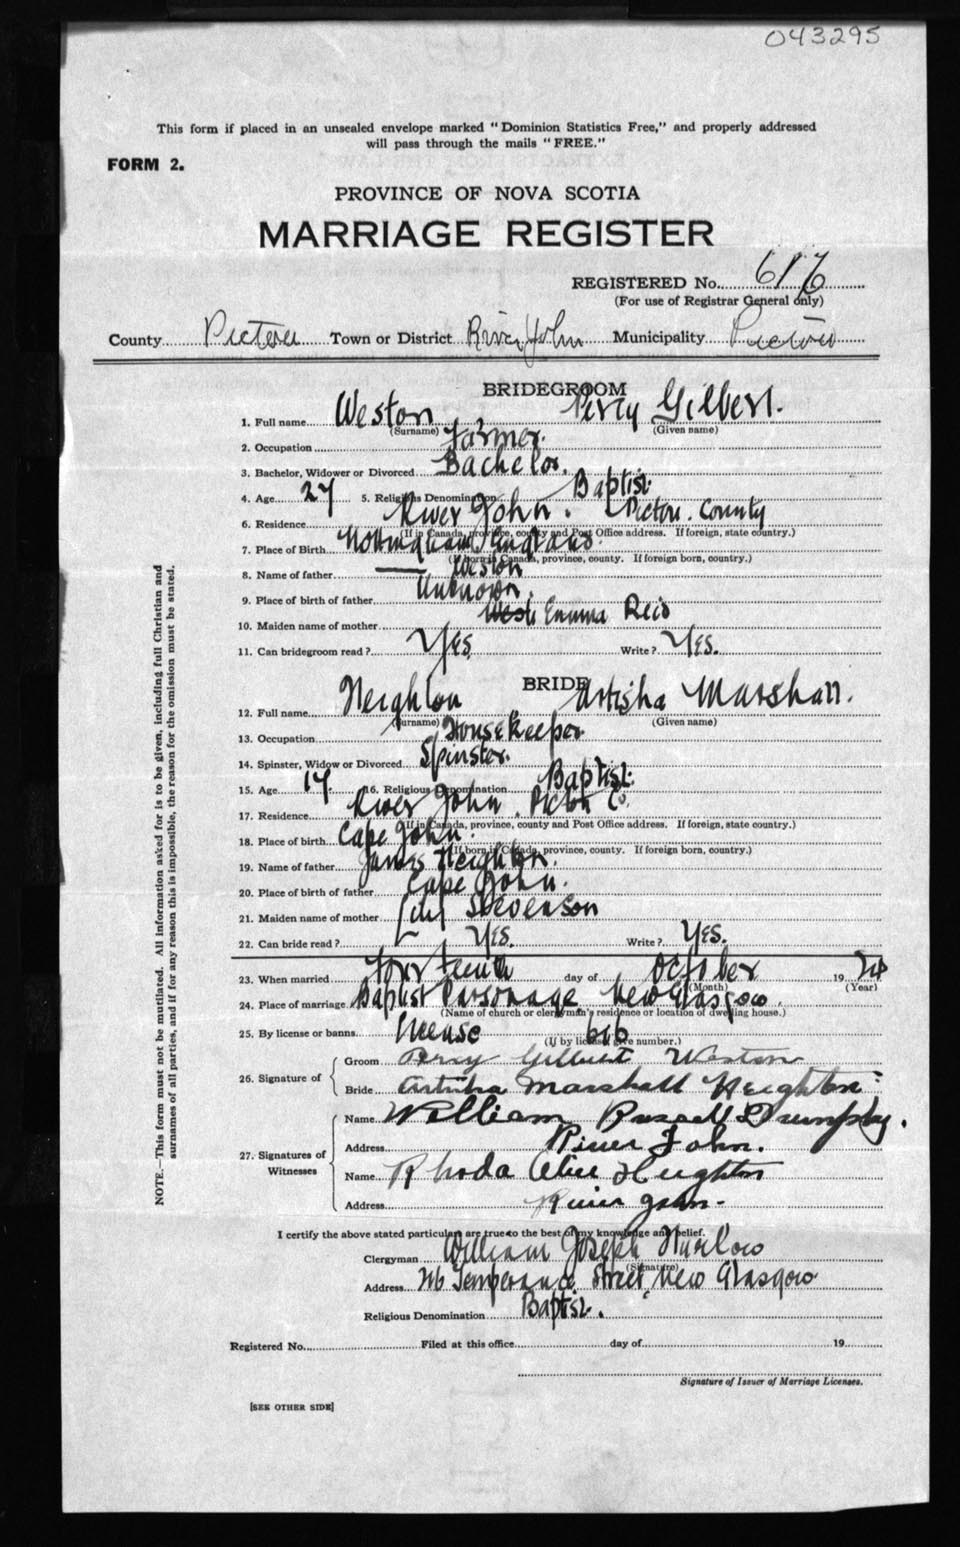 043295
This form if placed in an unsealed envelope marked "Dominion Statistics Free," and properly addressed
will pass through the mails "FREE."
FORM 2.
PROVINCE OF NOVA SCOTIA
MARRIAGE REGISTER
REGISTERED No. 616
(For use of Registrar General only)
County Pictou Town or District River John Municipality Pictou
BRIDEGROOM
1. Full name Weston Percy Gilbert.
(Surname) (Given name)
2. Occupation Farmer.
3. Bachelor, Widower or Divorced Bachelor.
4. Age 27 5. Religious Denomination Baptist
6. Residence River John. Pictou. County
(If in Canada, province, county and Post Office address. If foreign, state country.)
7. Place of Birth Nottingham England.
(If born in Canada, province, county. If foreign born, country.)
8. Name of father — Weston
9. Place of birth of father Unknown.
10. Maiden name of mother Emma Reid
11. Can bridegroom read? Yes. Write? Yes.
BRIDE
12. Full name Heighton Artisha Marshall.
(Surname) (Given name)
13. Occupation Housekeeper
14. Spinster, Widow or Divorced Spinster.
15. Age 17. 16. Religious Denomination Baptist.
17. Residence River John, Pictou Co.
(If in Canada, province, county and Post Office address. If foreign, state country.)
18. Place of birth Cape John.
(If born in Canada, province, county. If foreign born, country.)
19. Name of father James Heighton.
20. Place of birth of father Cape John.
21. Maiden name of mother Stevenson
22. Can bride read? Yes. Write? Yes.
23. When married Fourteenth day of October 1924
(Month) (Year)
24. Place of marriage Baptist Parsonage New Glasgow.
(Name of church or clergyman's residence or location of dwelling house.)
25. By license or banns License 616
(If by license give number.)
26. Signature of Groom Percy Gilbert Weston
Bride Artisha Marshall Heighton
27. Signatures of Witnesses Name William Russell
Address River John.
Name Rhoda Alice Heighton
Address River John.
I certify the above stated particulars are true to the best of my knowledge and belief.
Clergyman William Joseph
(Signature)
Address Temperance Street, New Glasgow
Religious Denomination Baptist.
Registered No. Filed at this office day of 19
Signature of Issuer of Marriage Licenses.
[SEE OTHER SIDE]
NOTE.—This form must not be mutilated. All information asked for is to be given, including full Christian and
surnames of all parties, and if for any reason this is impossible, the reason for the omission must be stated.